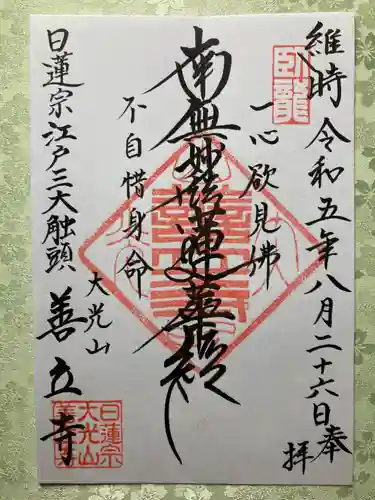 維時令和五年八月二十六日奉拝
臥龍
一心欲見佛
南無妙法蓮華経
不自惜身命
大光山
日蓮宗江戸三大触頭
善立寺
日蓮宗
大光山
善立寺